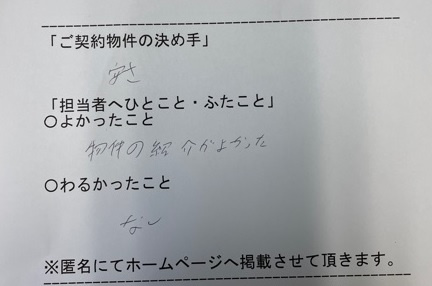 「ご契約物件の決め手」
安さ
「担当者へひとこと・ふたこと」
○よかったこと
物件の紹介がよかった
○わるかったこと
なし
※匿名にてホームページへ掲載させて頂きます。